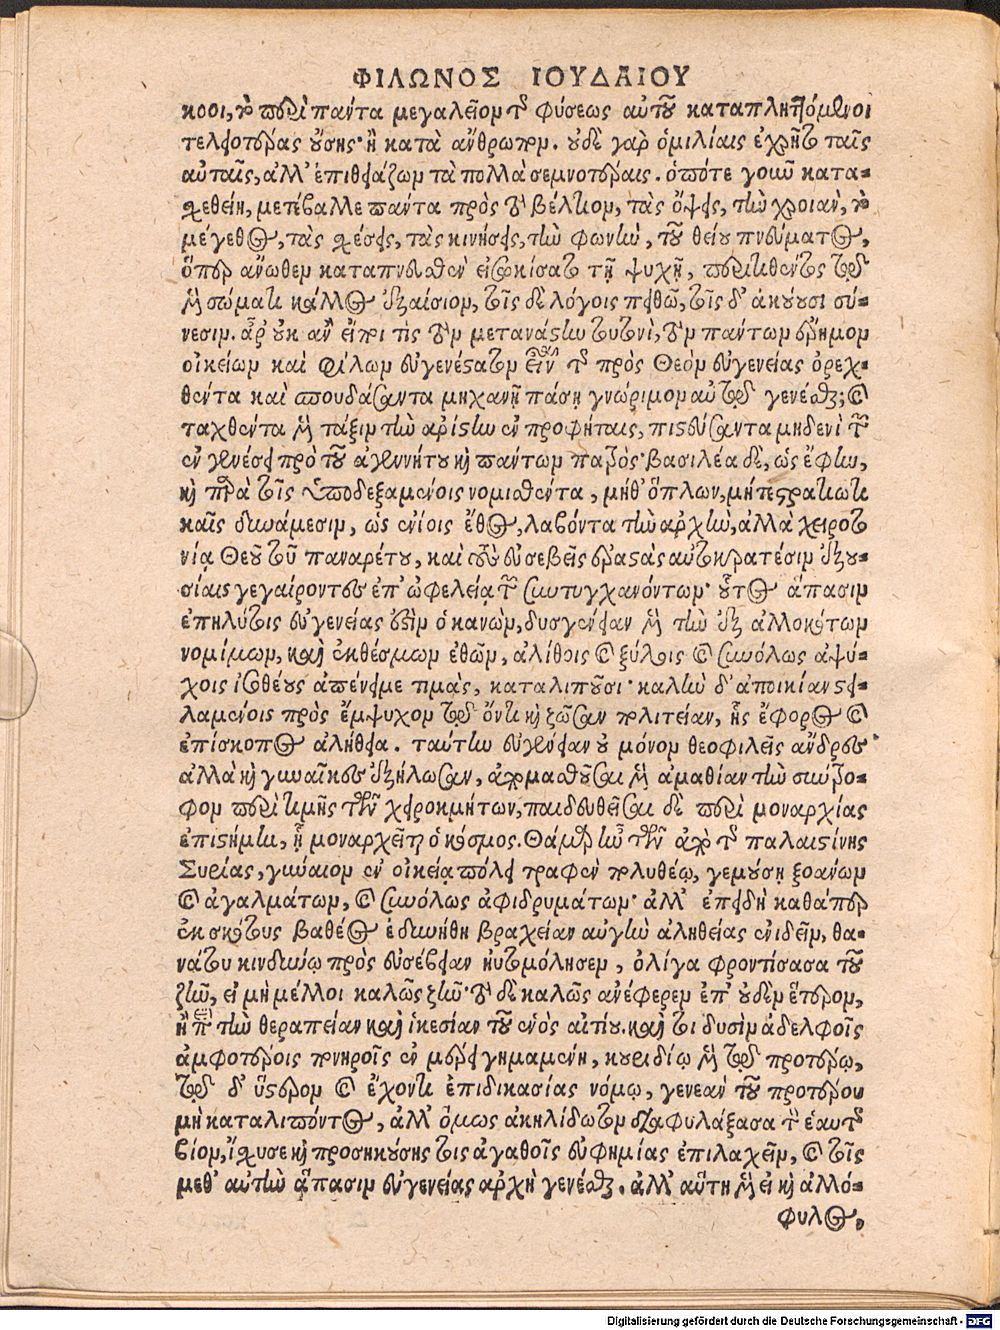 ΦΙΛΩΝΟΣ ΙΟΥΔΑΙΟΥ
κοοι, καὶ περὶ πάντα μεγαλεῖον τῆς φύσεως αὐτοῦ καταπληττόμενοι
τελειοτέρας οὔσης ἢ κατὰ ἄνθρωπον. οὐδὲ γὰρ ὁμιλίαις ἐχρῆτο ταῖς
αὐταῖς, ἀλλ' ἐπιθειάζων τὰ πολλὰ σεμνοτέραις. ὁπότε γοῦν κατα-
χεθείη, μετέβαλλε πάντα πρὸς τὸ βέλτιον, τὰς ὄψεις, τὴν χροιὰν, τὸ
μέγεθος, τὰς χέσεις, τὰς κινήσεις, τὴν φωνὴν, τοῦ θείου πνεύματος,
ὅπερ ἄνωθεν καταπνευσθὲν εἰσῳκίσατο τῇ ψυχῇ, περιτιθέντος τῷ
μὲν σώματι κάλλος ἐξαίσιον, τοῖς δὲ λόγοις πειθὼ, τοῖς δ' ἀκούουσι σύ-
νεσιν. ἆρ' οὐκ ἂν εἴποι τις τὸν μετανάστην τουτονὶ, τὸν πάντων ἔρημον
οἰκείων καὶ φίλων εὐγενέστατον εἶναι τῆς πρὸς Θεὸν εὐγενείας ὀρεχ-
θέντα καὶ σπουδάσαντα μηχανῇ πάσῃ γνώριμον αὐτῷ γενέσθαι; καὶ
ταχθέντα μὲν τάξιν τὴν ἀρίστην ἐν προφήταις, πιστεύσαντα μηδενὶ τῶν
ἐν γενέσει πρὸ τοῦ ἀγεννήτου καὶ πάντων πατρὸς· βασιλέα δὲ, ὡς ἔφην,
καὶ παρὰ τοῖς ὑποδεξαμένοις νομισθέντα, μήθ' ὅπλων, μήτε στρατιωτι
καῖς δυνάμεσιν, ὡς ἐνίοις ἔθος, λαβόντα τὴν ἀρχὴν, ἀλλὰ χειροτο
νίᾳ Θεοῦ τοῦ παναρέτου, καὶ τοὺς εὐσεβεῖς ἐραστὰς αὐτοκρατέσιν ἐξου-
σίαις γεγαίροντος ἐπ' ὠφελείᾳ τῶν συντυγχανόντων· οὗτος ἅπασιν
ἐπηλύτοις εὐγενείας ἐστὶν ὁ κανὼν, δυσγένειαν μὲν τὴν ἐξ ἀλλοκότων
νομίμων, καὶ ἐκθέσμων ἐθῶν, ἃ λίθοις καὶ ξύλοις καὶ συνόλως ἀψύ-
χοις ἰσοθέους ἀπένειμε τιμὰς, καταλιποῦσι· καλὴν δ' ἀποικίαν στει-
λαμένοις πρὸς ἔμψυχον τῷ ὄντι καὶ ζῶσαν πολιτείαν, ἧς ἔφορος καὶ
ἐπίσκοπος ἀλήθεια. ταύτην εὐγένειαν οὐ μόνον θεοφιλεῖς ἄνδρες
ἀλλὰ καὶ γυναῖκες ἐζήλωσαν, ἀπομαθοῦσαι μὲν ἀμαθίαν τὴν σύντρο-
φον περὶ τιμῆς τῶν χειροκμήτων, παιδευθεῖσαι δὲ περὶ μοναρχίας
ἐπιστήμην, ᾗ μοναρχεῖται ὁ κόσμος. Θάμαρ ἦν τῶν ἀπὸ τῆς παλαιστίνης
Συρίας, γύναιον ἐν οἰκείᾳ πόλει τραφὲν πολυθέῳ, γεμούσῃ ξοάνων
καὶ ἀγαλμάτων, καὶ συνόλως ἀφιδρυμάτων· ἀλλ' ἐπειδὴ καθάπερ
ἐκ σκότους βαθέος ἐδυνήθη βραχεῖαν αὐγὴν ἀληθείας ἐνιδεῖν, θα-
νάτου κινδύνῳ πρὸς εὐσέβειαν ηὐτομόλησεν, ὀλίγα φροντίσασα τοῦ
ζῆν, εἰ μὴ μέλλοι καλῶς ζῆν· τὸ δὲ καλῶς ἀνέφερεν ἐπ' οὐδὲν ἕτερον,
ἢ ἐπὶ τὴν θεραπείαν καὶ ἱκεσίαν τοῦ ἑνὸς αἰτίου. καίτοι δυσὶν ἀδελφοῖς
ἀμφοτέροις πονηροῖς ἐν μέρει γημαμένη, κουριδίῳ μὲν τῷ προτέρῳ,
τῷ δ' ὕστερον καὶ ἔχοντι ἐπιδικασίας νόμῳ, γενεὰν τοῦ προτέρου
μὴ καταλιπόντος, ἀλλ' ὅμως ἀκηλίδωτον διαφυλάξασα τὸν ἑαυτῆς
βίον, ἴσχυσε καὶ προσηκούσης τοῖς ἀγαθοῖς εὐφημίας ἐπιλαχεῖν, καὶ τοῖς
μεθ' αὐτὴν ἅπασιν εὐγενείας ἀρχὴ γενέσθαι. ἀλλ' αὕτη μὲν εἰ καὶ ἀλλό-
φυλος,
Digitalisierung gefördert durch die Deutsche Forschungsgemeinschaft - DFG